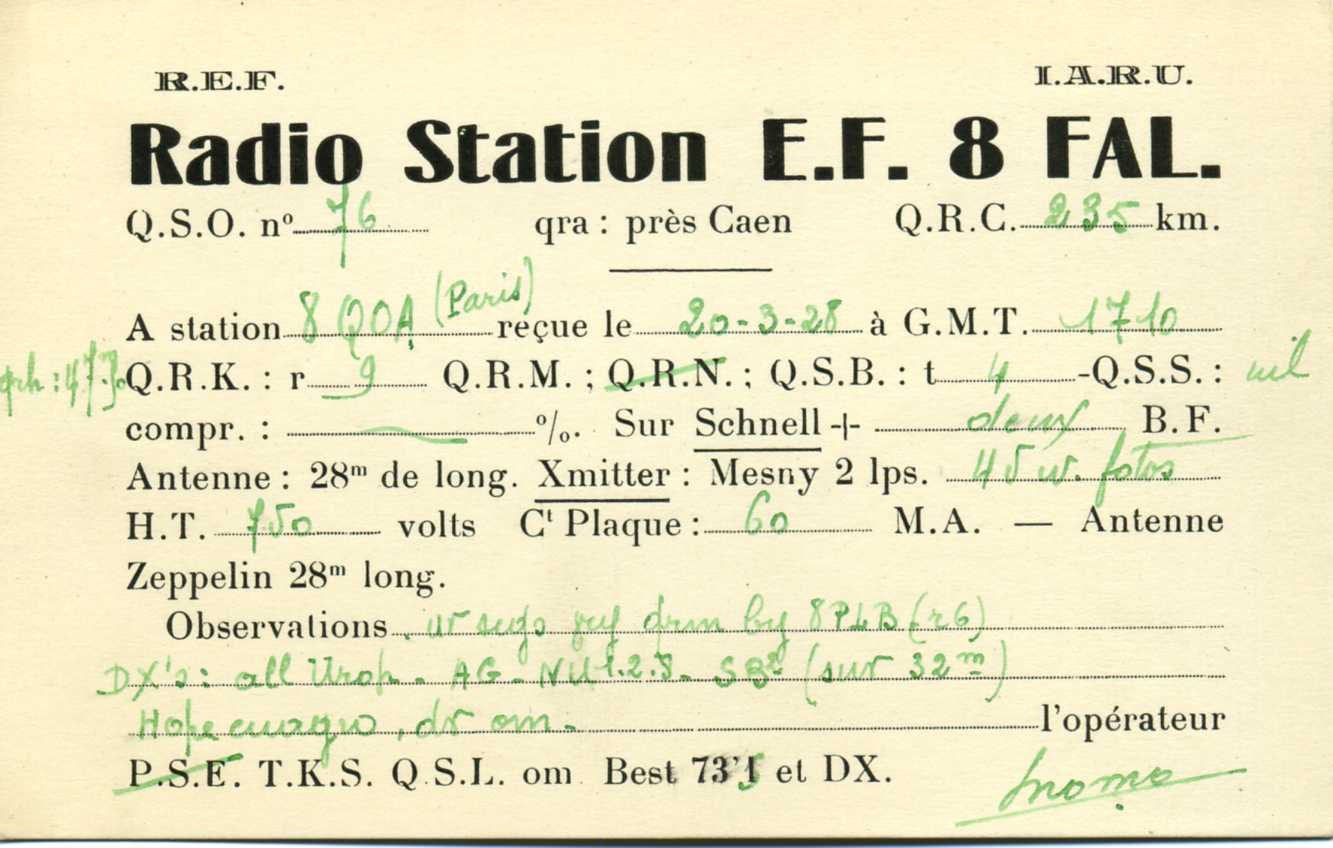 R.E.F. I.A.R.U.
Radio Station E.F. 8 FAL.
Q.S.O. nº 76 qra : près Caen Q.R.C. 235 km.
A station 8 QOA (Paris) reçue le 20-3-28 à G.M.T. 1710
Q.R.K. : r 9 Q.R.M. ; Q.R.N. ; Q.S.B. : t 4 -Q.S.S. : nil
compr. : % . Sur Schnell + deux B.F.
Antenne : 28m de long. Xmitter : Mesny 2 lps. 45 w. fotos
H.T. 750 volts Ct Plaque : 60 M.A. — Antenne
Zeppelin 28m long.
Observations ur sigs by 8PLB (r6)
DX's : all Urop. - AG - NU 1.2.8 - SB2 (sur 32 m)
Hope cuagn, dr om. l'opérateur
P.S.E. T.K.S. Q.S.L. om Best 73's et DX.